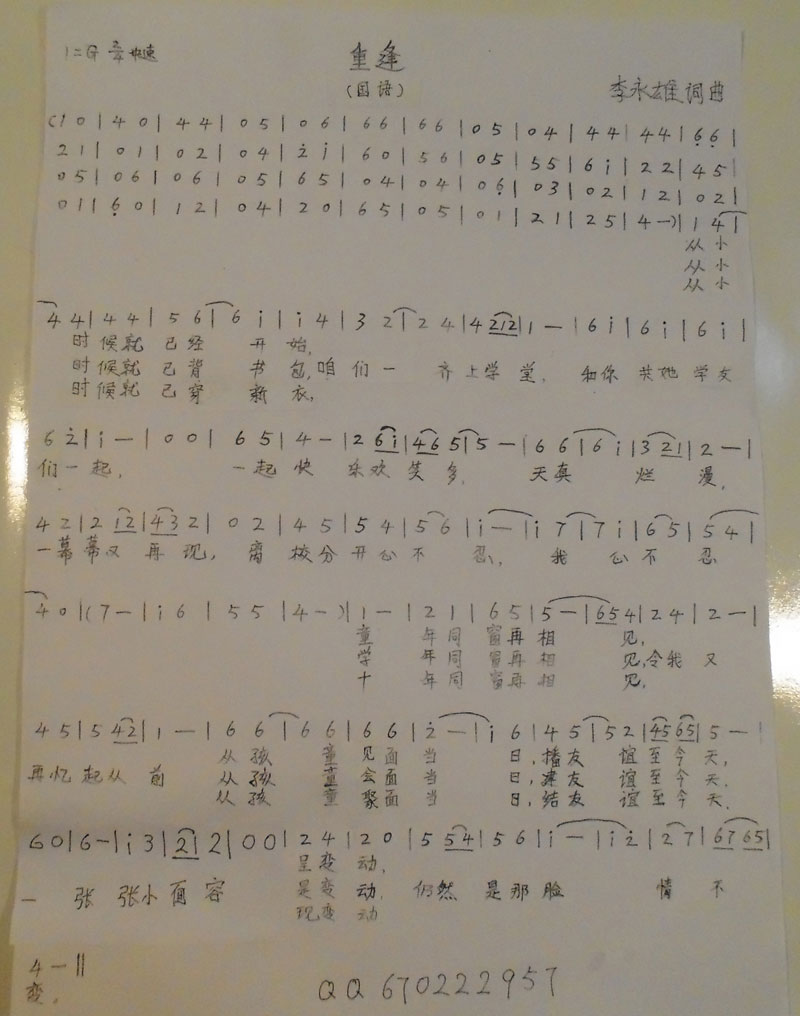 1=G 2/4 快速
重逢
(国语)
李永雄词曲
(1 0 | 4 0 | 4 4 | 0 5 | 0 6 | 6 6 | 6 6 | 0 5 | 0 4 | 4 4 | 4 4 | 6̣ 6̣ |
2 1 | 0 1 | 0 2 | 0 4 | 2̇ i | 6 0 | 5 6 | 0 5 | 5 5 | 6 i | 2 2 | 4 5 |
0 5 | 0 6 | 0 6 | 0 5 | 6 5 | 0 4 | 0 4 | 0 6̣ | 0 3 | 0 2 | 1 2 | 0 2 |
0 1 | 6̣ 0 | 1 2 | 0 4 | 2 0 | 6 5 | 0 5 | 0 1 | 2 1 | 2 5 | 4 —) | 1 4 |
从小
从小
从小
4 4 | 4 4 | 5 6 | 6 i | i 4 | 3 2 | 2 4 | 4 2 1 2 | 1 — | 6 i | 6 i | 6 i |
时候就已经开始,
时候就已背书包,咱们一齐上学堂,和你共她学友
时候就已穿新衣,
6 2̇ | i — | 0 0 | 6 5 | 4 — | 2 6 i | 4 6 5 | 5 — | 6 6 | 6 i | 3 2 1 | 2 — |
们一起,一起快乐欢笑多,天真烂漫,
4 2 | 2 1 2 | 4 3 2 | 0 2 | 4 5 | 5 4 | 5 6 | i — | i 7 | 7 i | 6 5 | 5 4 |
一幕幕又再现,离校分开心不忍,我心不忍
4 0 | (7 — | i 6 | 5 5 | 4 —) | 1 — | 2 1 | 6 5 | 5 — | 6 5 4 | 2 4 | 2 — |
童年同窗再相见,
学年同窗再相见,令我又
十年同窗再相见,
4 5 | 5 4 2 | 1 — | 6 6 | 6 6 | 6 6 | 2̇ — | i 6 | 4 5 | 5 2 | 4 5 6 5 | 5 — |
从孩童见面当日,播友谊至今天,
再忆起从前从孩童会面当日,建友谊至今天,
从孩童聚面当日,结友谊至今天,
6 0 | 6 — | i 3 | 2 i | 2 | 0 0 | 2 4 | 2 0 | 5 5 4 | 5 6 | i — | i 2̇ | 2 7 | 6 7 6 5 |
呈变动,
一张张小面容是变动,仍然是那脸情不
现变动
4 — ||
变.
QQ 670222957